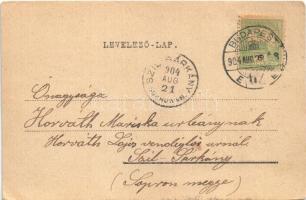 LEVELEZŐ-LAP.
BUDAPEST
904 AUG
SZIL SÁRKÁNY
904
AUG
21
Őnagysága
Horváth Mariska urleánynak
Horváth Lajos vendéglős urnál.
Szil-Sárkány
(Sopron megye)